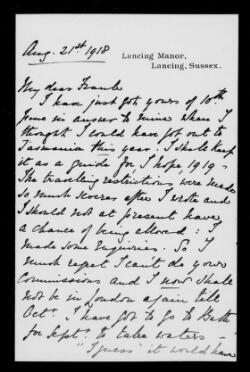 Aug. 21st 1918
Lancing Manor,
Lancing, Sussex.
My dear Frank
I have just got yours of 10th
June in answer to mine when I
thought I could have got out to
Tasmania this year. I shall keep
it as a guide for I hope, 1919 -
The travelling restrictions were made
so much severer after I wrote and
I should not at present have
a chance of being allowed: I
made some enquiries. So I
much regret I can't do yours
Commissions and I now shall
not be in London again till
Octr. I have got to go to Bath
for Septr. to take waters -
"I guess" it would have